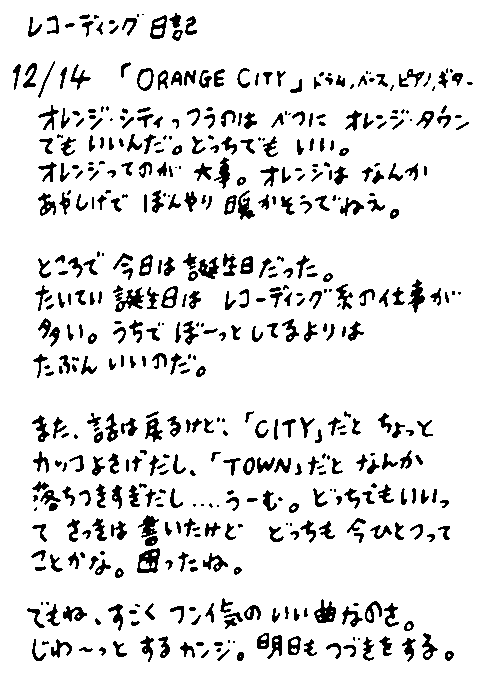 レコーディング日記
12/14 「ORANGE CITY」ドラム,ベース,ピアノ,ギター
オレンジ・シティっつうのは べつに オレンジ・タウン
でも いいんだ。どっちでも いい。
オレンジってのが 大事。オレンジは なんか
あやしげで ぼんやり 暖かそうでねえ。
ところで 今日は 誕生日だった。
たいてい 誕生日は レコーディング系の仕事が
多い。うちで ぼーっとしてるよりは
たぶん いいのだ。
また、話は戻るけど、「CITY」だと ちょっと
カッコよさげだし、「TOWN」だと なんか
落ちつきすぎだし....うーむ。どっちでもいいっ
て さっきは 書いたけど どっちも 今ひとつって
ことかな。困ったね。
でもね、すごく フン囲気の いい曲なのさ。
じわ〜っと するカンジ。明日も つづきをする。